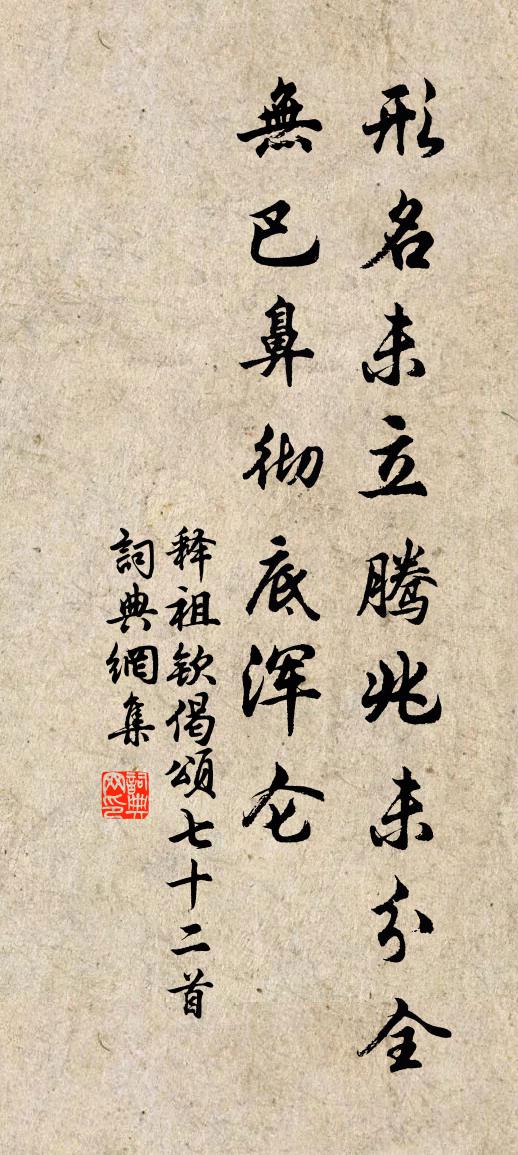 形名未立腾兆未分全
無巴鼻彻底浑仑
释祖钦偈颂七十二首
詞典網集
詞典网印